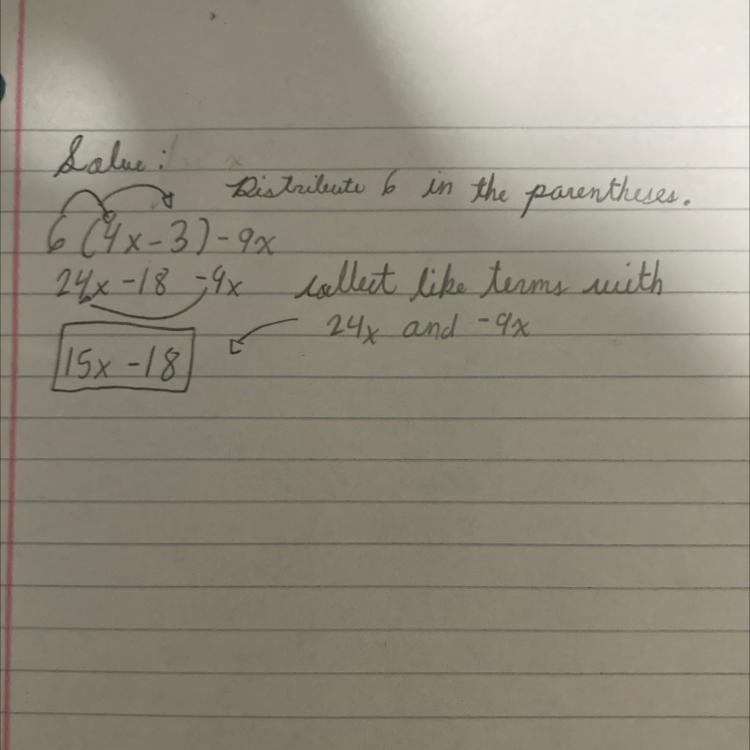 Solve:
Distribute 6 in the parentheses.
6(4x-3)-9x
24x-18-9x
collect like terms with
24x and -9x
15x-18